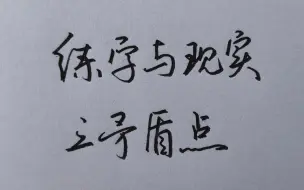 练字与现实
之矛盾点